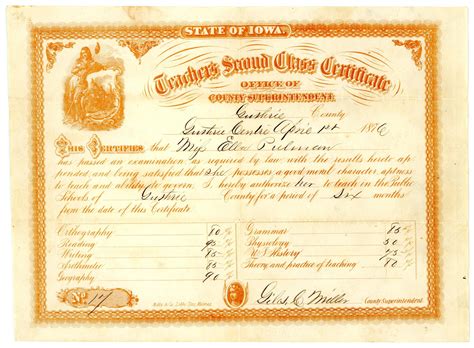 STATE OF IOWA.
Teacher's Second Class Certificate
OFFICE OF
COUNTY SUPERINTENDENT.
Guthrie County
Guthrie Centre April 1st 1876
THIS CERTIFIES that Miss Ella Pulman
has passed an examination as required by law with the results hereto ap-
pended and being satisfied that She possesses a good moral character, aptness
to teach and ability to govern I hereby authorize her to teach in the Public
Schools of Guthrie County for a period of Six months
from the date of this Certificate
Orthography 80 %
Reading 95 %
Writing 85 %
Arithmetic 85 %
Geography 90 %
Grammar 85 %
Physiology 50 %
U S History 75 %
Theory and practice of teaching 80 %
No. 17
Giles C Miller County Superintendent